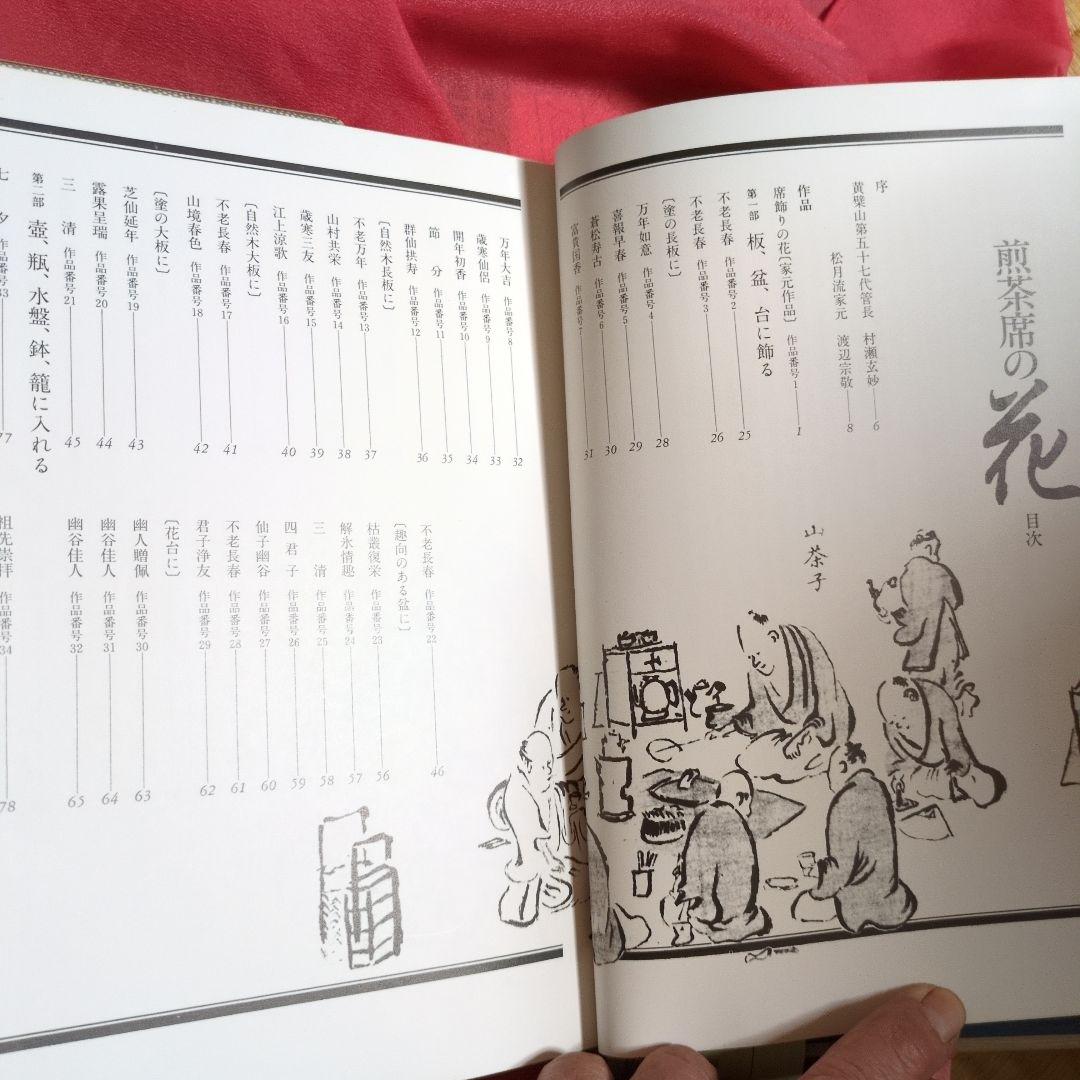 煎茶席の花
目次
序
黄檗山第五十七代管長　村瀬玄妙 6
松月流家元　渡辺宗敬 8
作品
席飾りの花〔家元作品〕　作品番号1 1
第一部　板、盆、台に飾る
不老長春　作品番号2 25
不老長春　作品番号3 26
〔塗の長板に〕
万年如意　作品番号4 28
喜報早春　作品番号5 29
蒼松寿古　作品番号6 30
富貴国香　作品番号7 31
山茶子
万年大吉　作品番号8 32
歳寒仙侶　作品番号9 33
開年初香　作品番号10 34
節分　作品番号11 35
群仙拱寿　作品番号12 36
〔自然木長板に〕
不老万年　作品番号13 37
山村共栄　作品番号14 38
歳寒三友　作品番号15 39
江上涼歌　作品番号16 40
〔自然木大板に〕
不老長春　作品番号17 41
山境春色　作品番号18 42
〔塗の大板に〕
芝仙延年　作品番号19 43
露果呈瑞　作品番号20 44
三清　作品番号21 45
第二部　壺、瓶、水盤、鉢、籠に入れる
七夕　作品番号33 77
不老長春　作品番号22 46
〔趣向のある盆に〕
枯叢復栄　作品番号23 56
解氷情趣　作品番号24 57
三清　作品番号25 58
四君子　作品番号26 59
仙子幽谷　作品番号27 60
不老長春　作品番号28 61
君子浄友　作品番号29 62
〔花台に〕
幽人贈佩　作品番号30 63
幽谷佳人　作品番号31 64
幽谷佳人　作品番号32 65
祖先崇拝　作品番号34 78